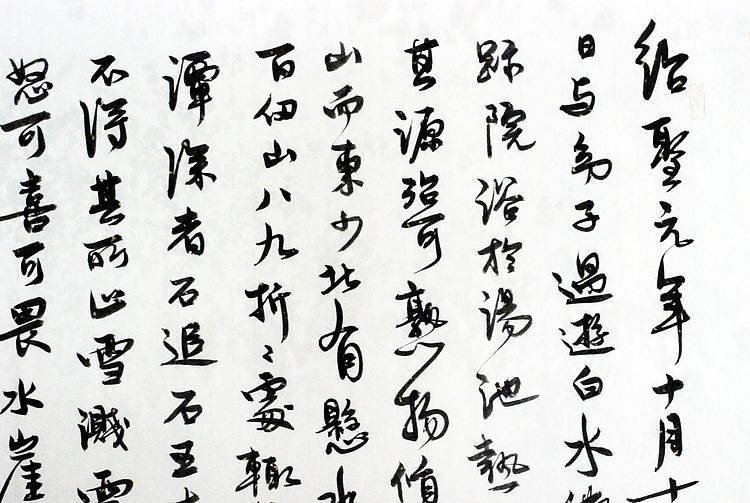 紹聖元年十月十
日与幼子過遊白水佛
跡院浴於湯池熱
其源殆可熟物循
山而東少北有懸水
百仞山八九折〻處輒
潭深者石追石五
不得其所止雪濺雷
怒可喜可畏水崖